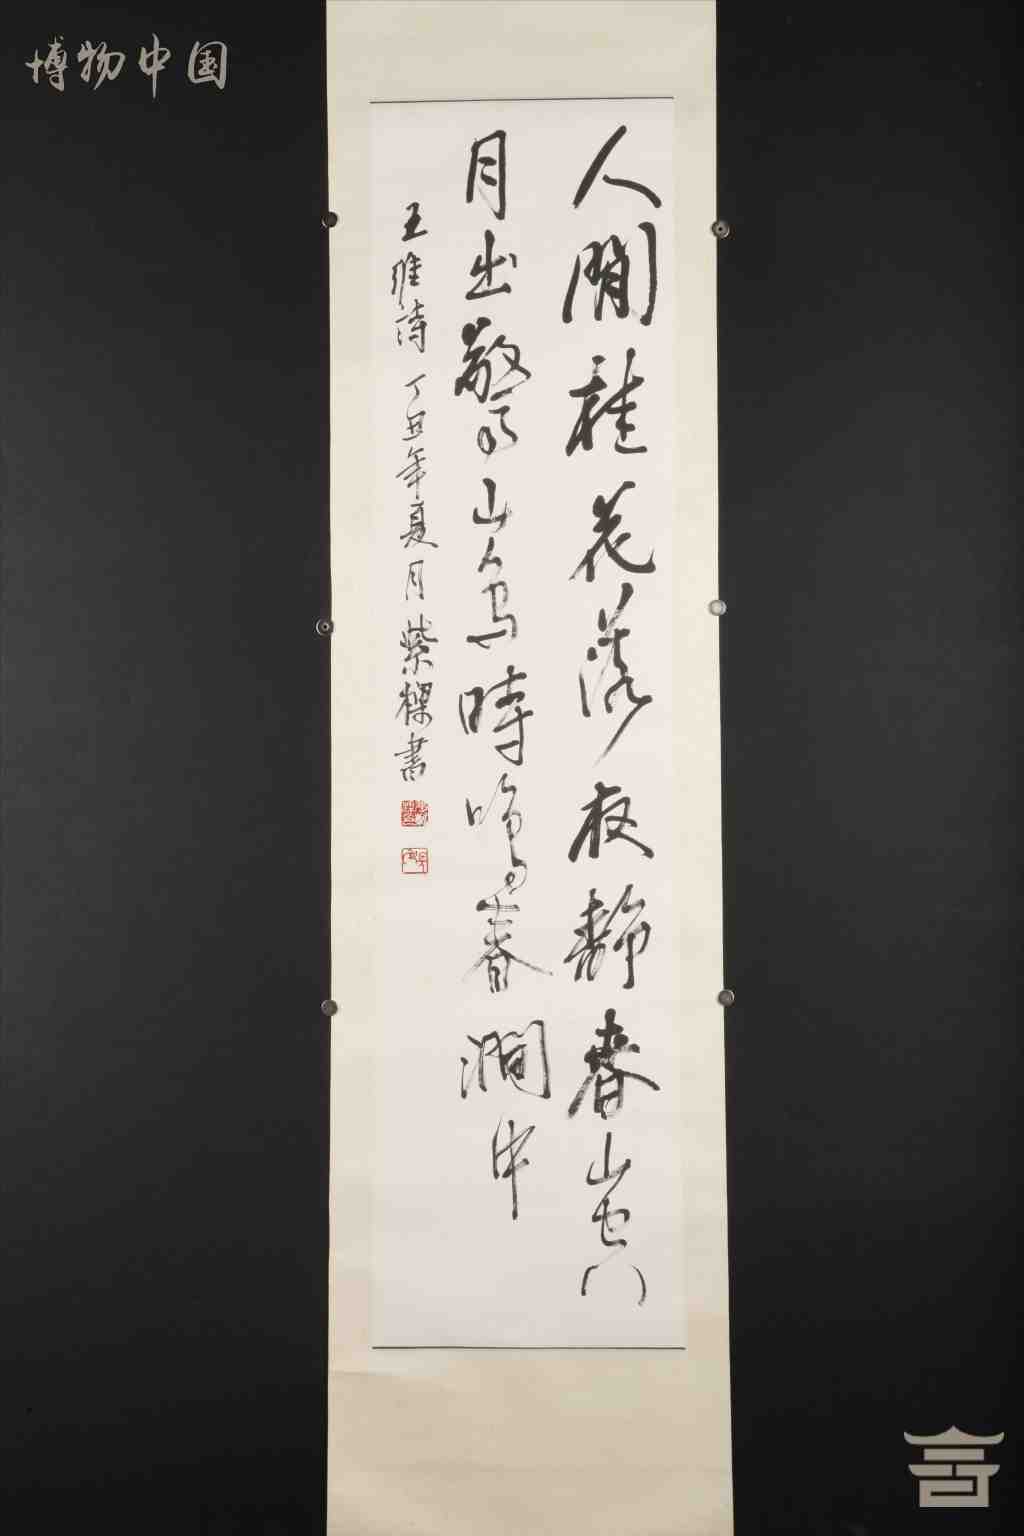 博物中国
人閒桂花落夜静春山空
月出驚山鳥時鳴春澗中
王維詩 丁丑年夏月 紫樑書